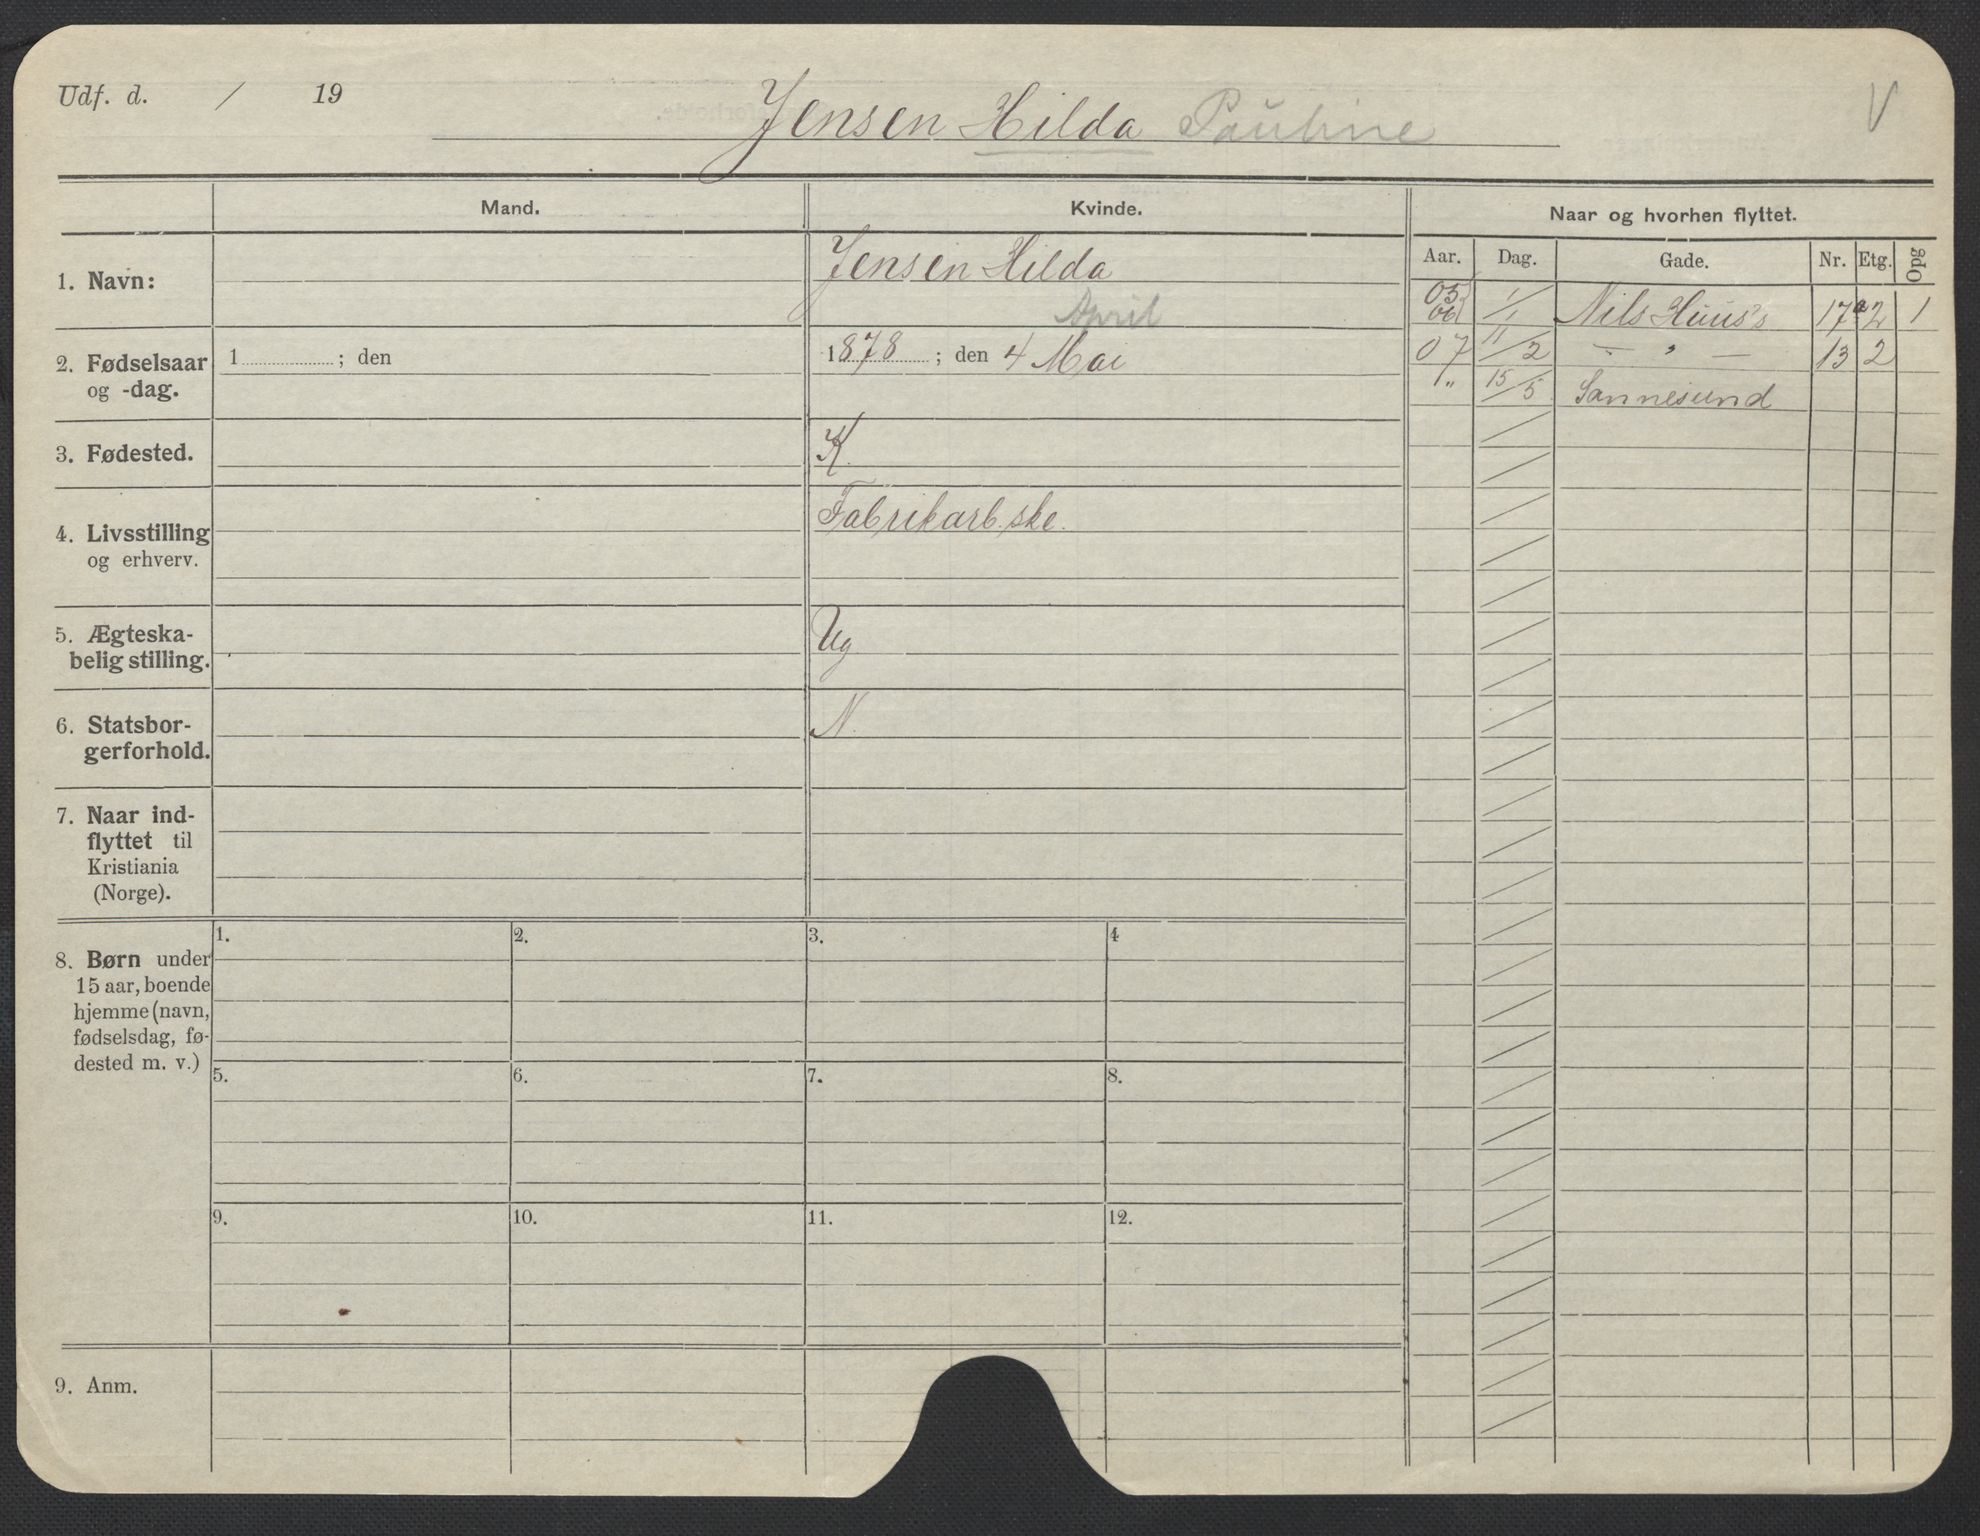 Udf. d. / 19
Jensen Hilda Pauline
V
Mand.
Kvinde.
Naar og hvorhen flyttet.
Aar.
Dag.
Gade.
Nr.
Etg.
Opg
1. Navn:
Jensen Hilda
April
2. Fødselsaar
og -dag.
1 ; den
1878 ; den 4 Mai
3. Fødested.
K.
4. Livsstilling
og erhverv.
Fabrikarb.ske.
5. Ægteska-
belig stilling.
Ug
6. Statsbor-
gerforhold.
N.
7. Naar ind-
flyttet til
Kristiania
(Norge).
8. Børn under
15 aar, boende
hjemme (navn,
fødselsdag, fø-
dested m. v.)
1.
2.
3.
4
5.
6.
7.
8.
9.
10.
11.
12.
9. Anm.
05
06 1/1 Nils Huus's 17a 2 1
07 11/2 — " — 13 2
" 15/5 Sannesund